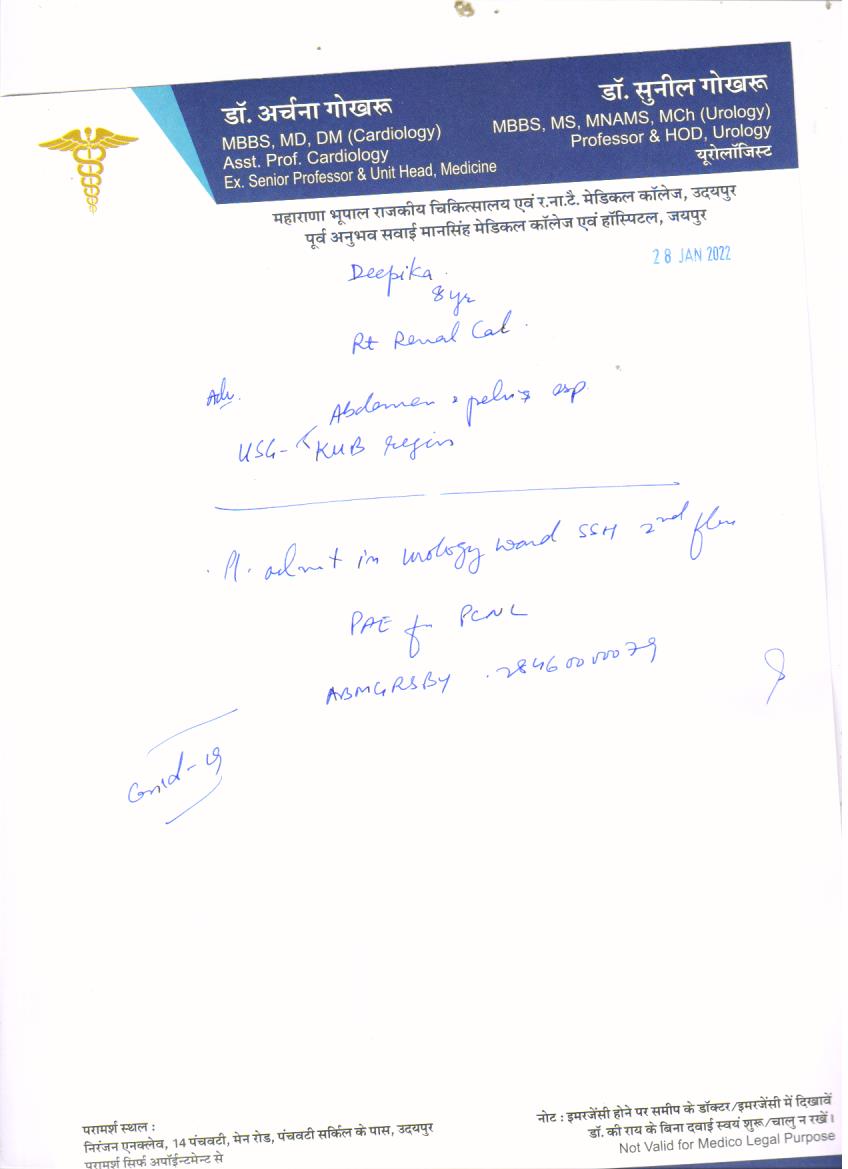 डॉ. अर्चना गोखरू
MBBS, MD, DM (Cardiology)
Asst. Prof. Cardiology
Ex. Senior Professor & Unit Head, Medicine
डॉ. सुनील गोखरू
MBBS, MS, MNAMS, MCh (Urology)
Professor & HOD, Urology
यूरोलॉजिस्ट
महाराणा भूपाल राजकीय चिकित्सालय एवं र.ना.टै. मेडिकल कॉलेज, उदयपुर
पूर्व अनुभव सवाई मानसिंह मेडिकल कॉलेज एवं हॉस्पिटल, जयपुर
28 JAN 2022
Deepika
8 yr
Rt Renal Cal.
Adv.
Abdomen & pelvis esp
USG- KUB region
Pl. admit in urology ward SSH 2nd floor
PAE for PCNL
ABMGRSBY
Covid-19
परामर्श स्थल :
निरंजन एनक्लेव, 14 पंचवटी, मेन रोड, पंचवटी सर्किल के पास, उदयपुर
परामर्श सिर्फ अपॉईन्टमेन्ट से
नोट : इमरजेंसी होने पर समीप के डॉक्टर/इमरजेंसी में दिखावें
डॉ. की राय के बिना दवाई स्वयं शुरू/चालु न रखें।
Not Valid for Medico Legal Purpose